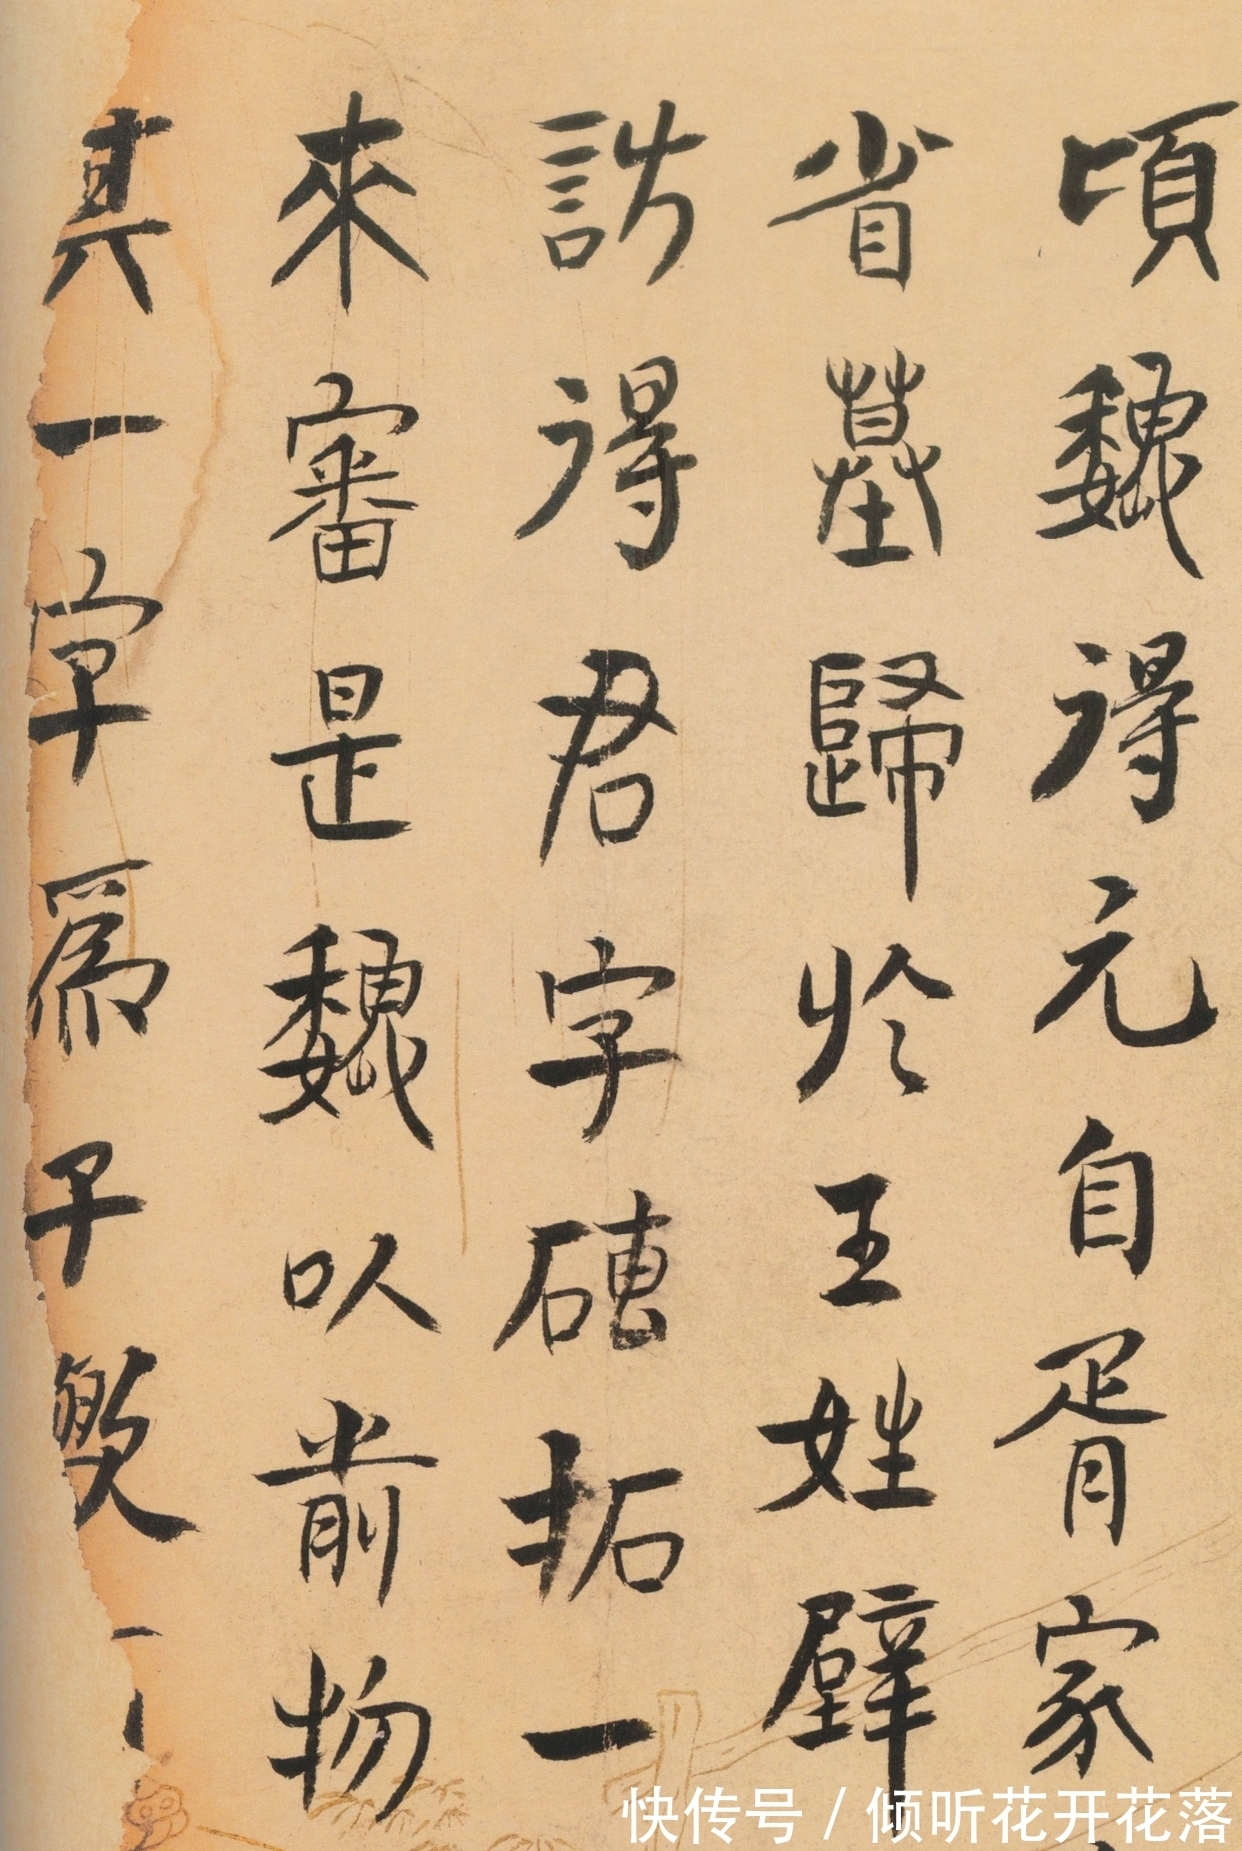 頃魏得元自胥家
省墓歸於王姓壁
訪得君字磚拓一
來審是魏以前物
其一字為子
快传号 / 倾听花开花落